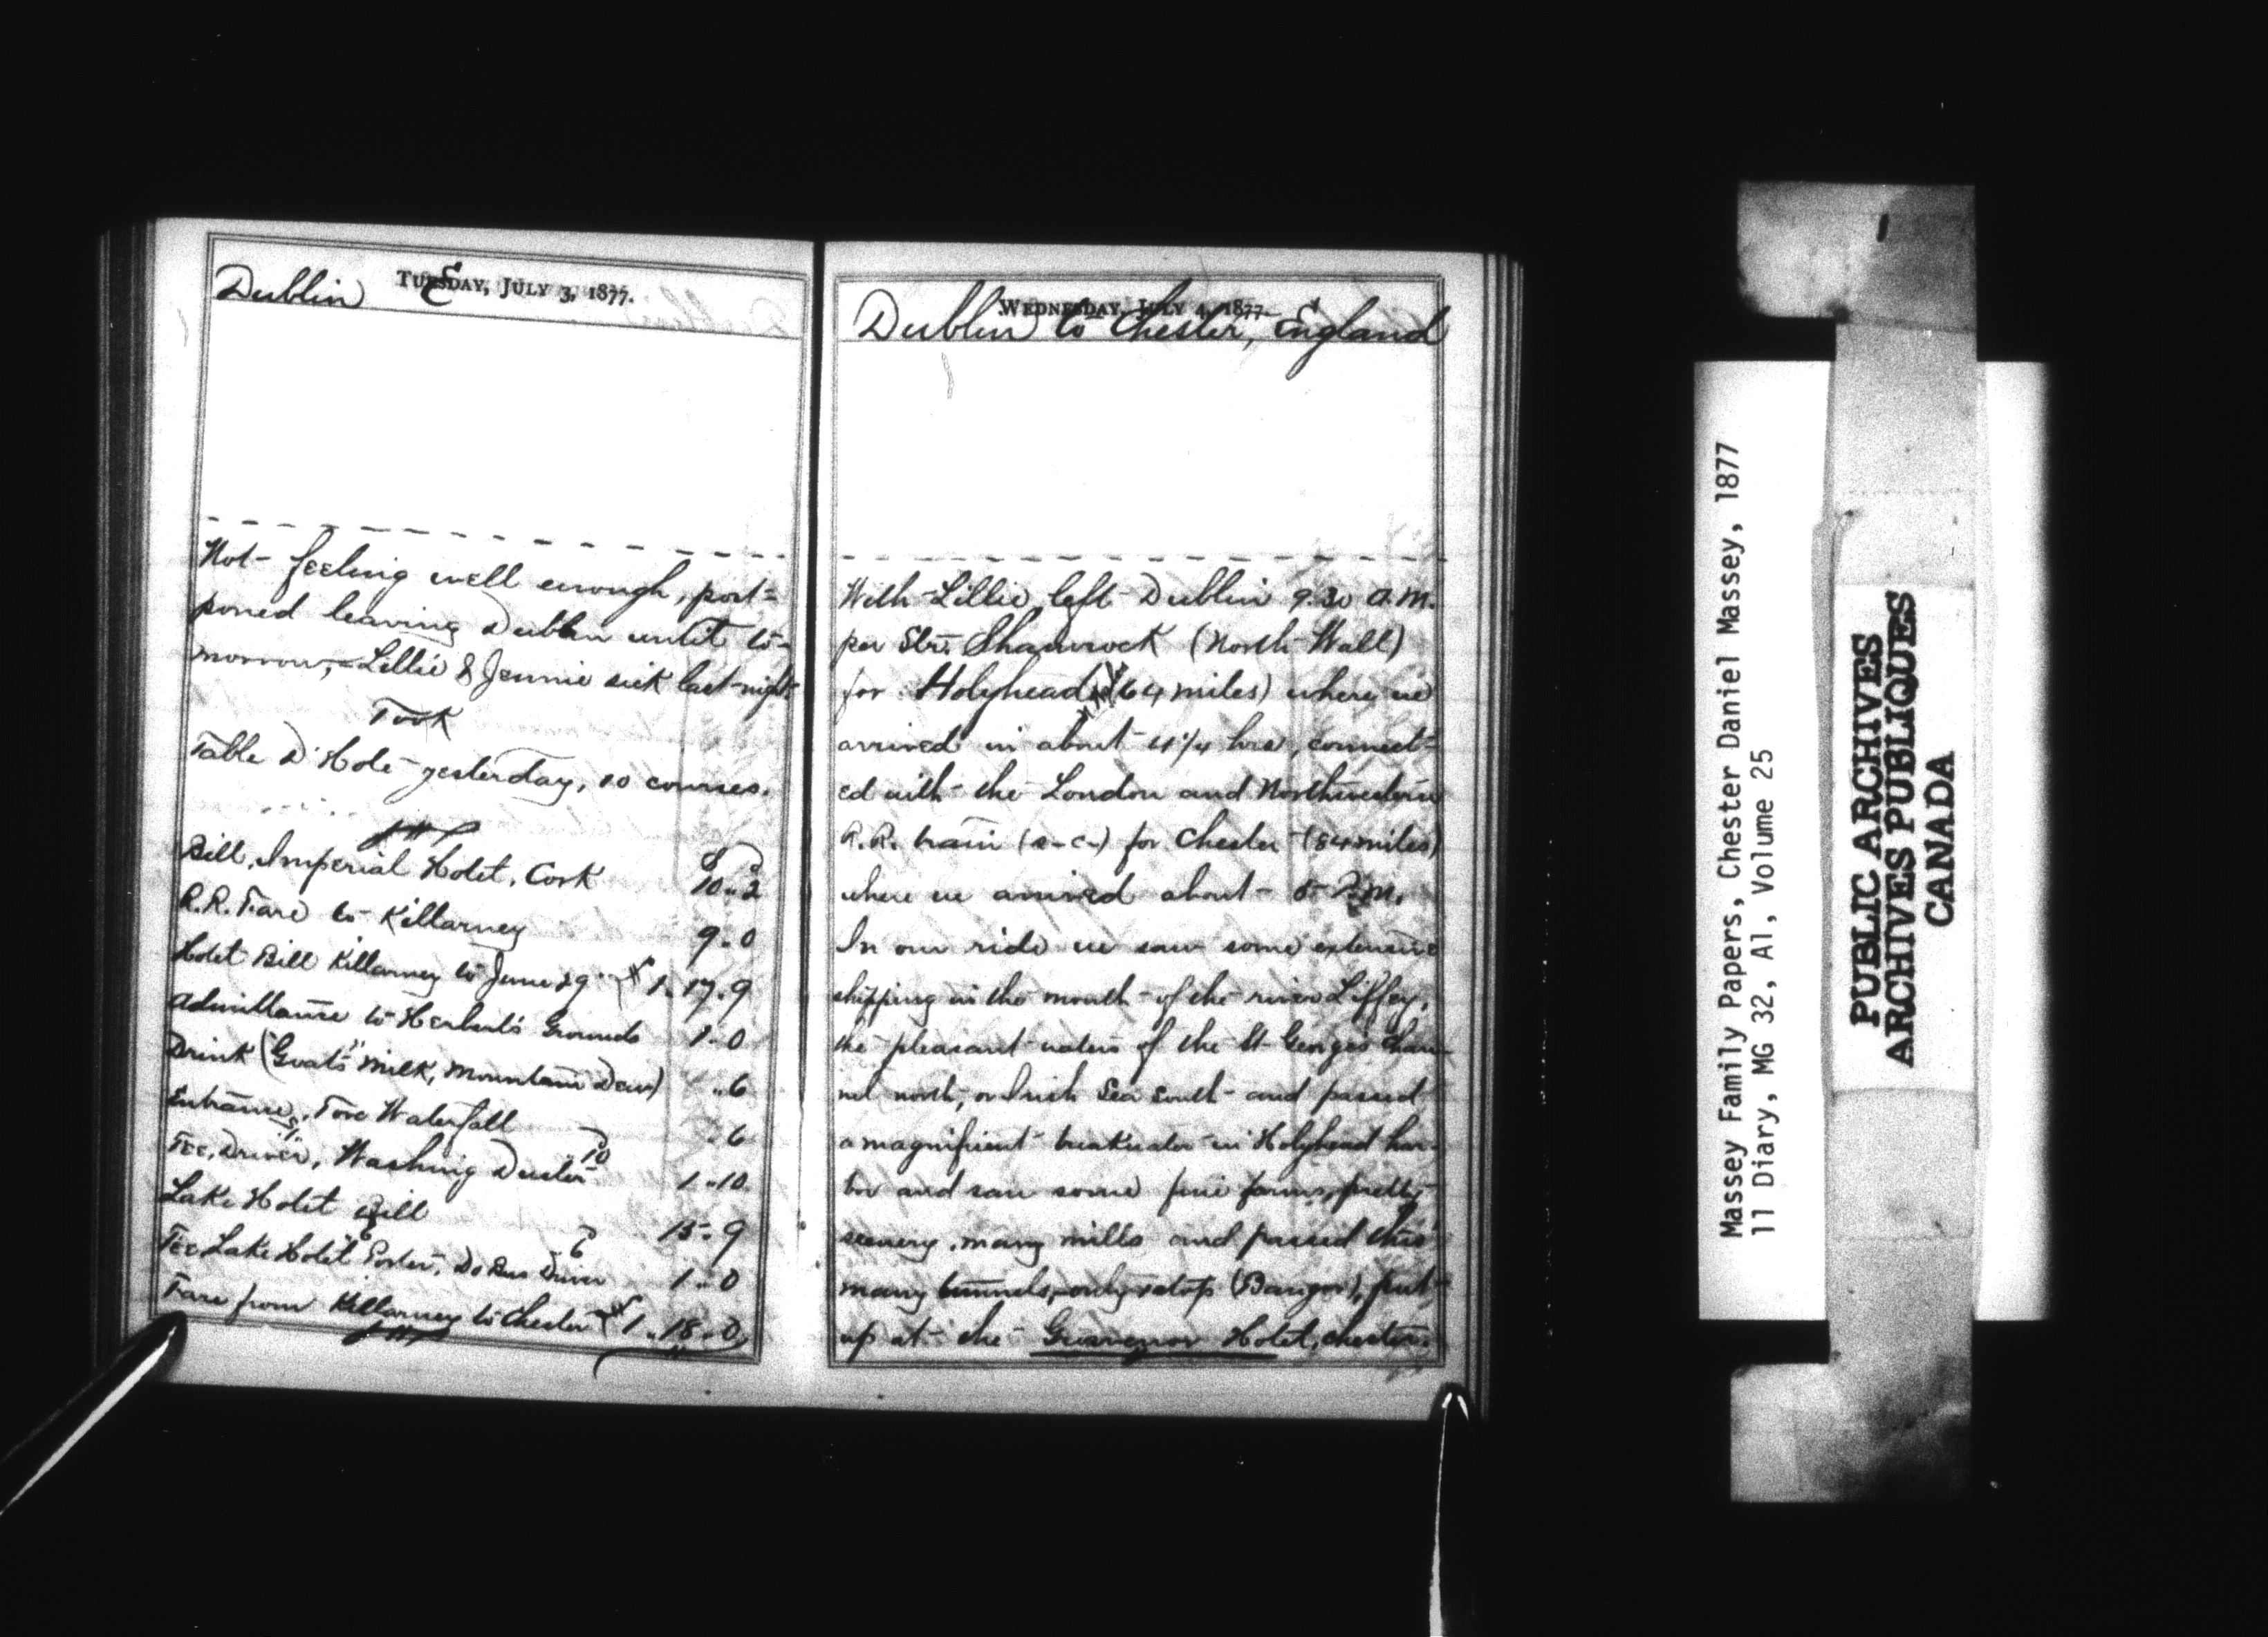 TUESDAY, JULY 3, 1877.
Dublin
Not feeling well enough, post=
poned leaving Dublin until to-
morrow, Lillie & Jennie sick last night
Took
Table D'Hote yesterday, 10 courses.
Bill, Imperial Hotel, Cork 10..2
R.R. Fare to Killarney 9..0
Hotel Bill Killarney to June 29 1..17..9
Admittance to Herbert's Grounds 1..0
Drink ("Goats" milk, Mountain Dew) ..6
Entrance, Torc Waterfall ..6
Fee, Driver, Washing Duster 10 1..10
Lake Hotel Bill 15..9
Fee Lake Hotel Porter, Do Bus Driver 6 1..0
Fare from Killarney to Chester 1..18..0
WEDNESDAY, JULY 4, 1877.
Dublin to Chester, England
With Lillie left Dublin 9.30 A.M.
per Str. Shamrock (North Wall)
for Holyhead (64 miles) where we
arrived in about 4 1/4 hrs, connect=
ed with the London and Northwestern
R.R. train (2-c-) for Chester (84 miles)
where we arrived about 5 P.M.
In our ride we saw some extensive
shipping in the mouth of the river Liffey,
the pleasant waters of the St Georges Chan-
nel north, or Irish Sea South and passed
a magnificent breakwater in Holyhead har-
bor and saw some fine farms, pretty
scenery, many mills and passed thro'
many tunnels, only stop (Bangor), put
up at the Grosvenor Hotel, Chester.
Massey Family Papers, Chester Daniel Massey, 1877
11 Diary, MG 32, A1, Volume 25
PUBLIC ARCHIVES
ARCHIVES PUBLIQUES
CANADA